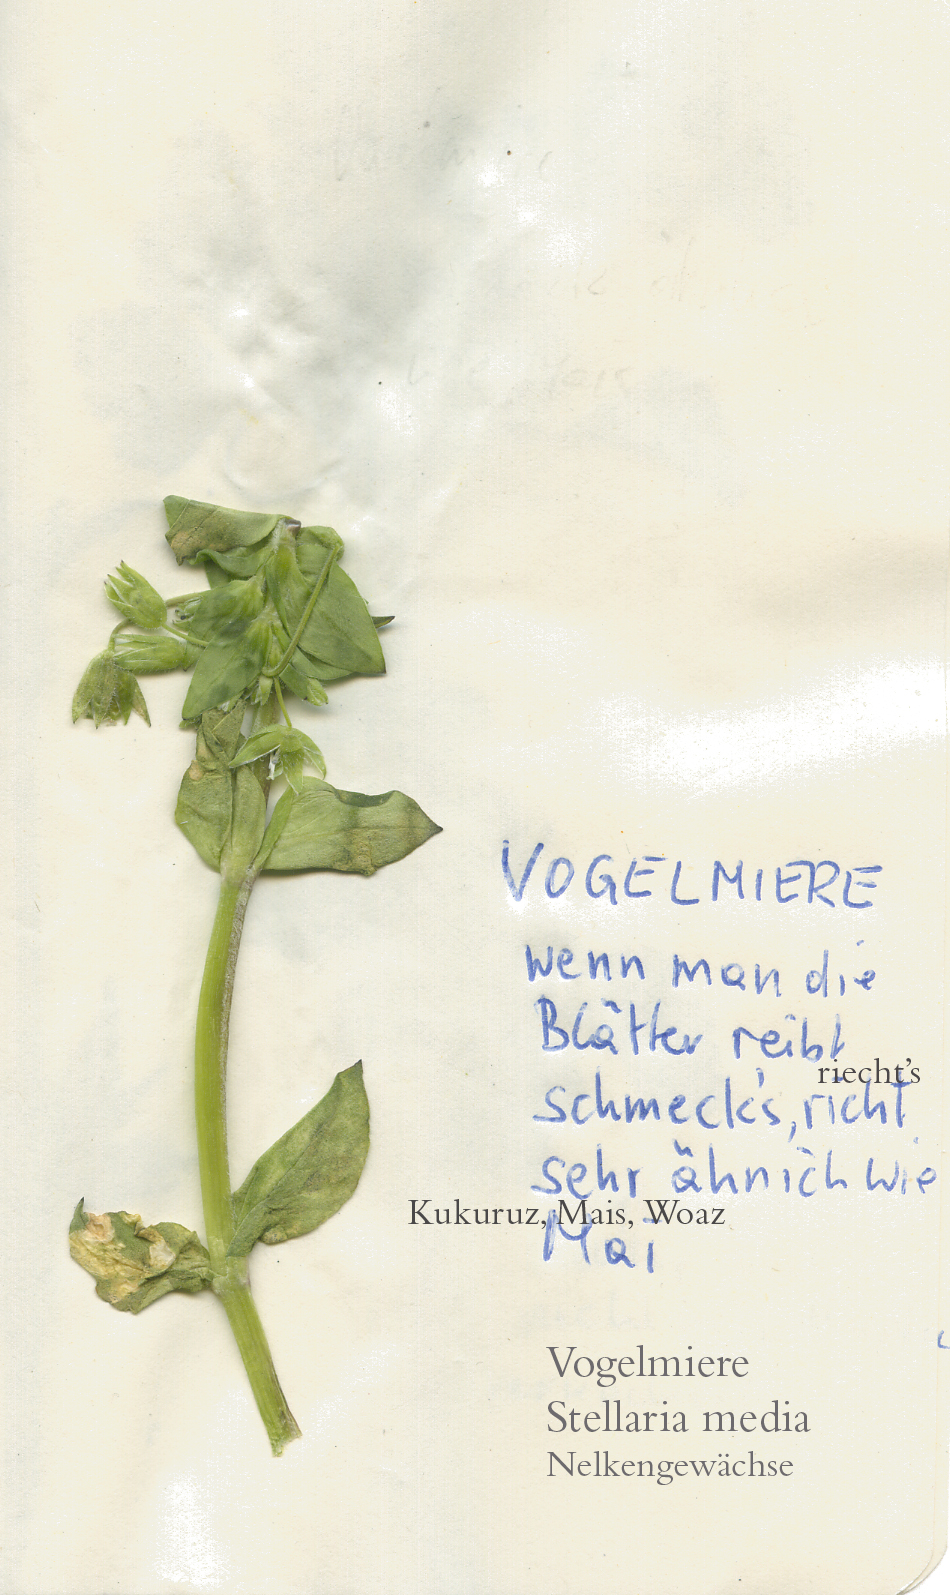 VOGELMIERE
wenn man die
Blätter reibt
riecht's
schmeck's, richt
sehr ähnich wie
Kukuruz, Mais, Woaz
Mai
Vogelmiere
Stellaria media
Nelkengewächse